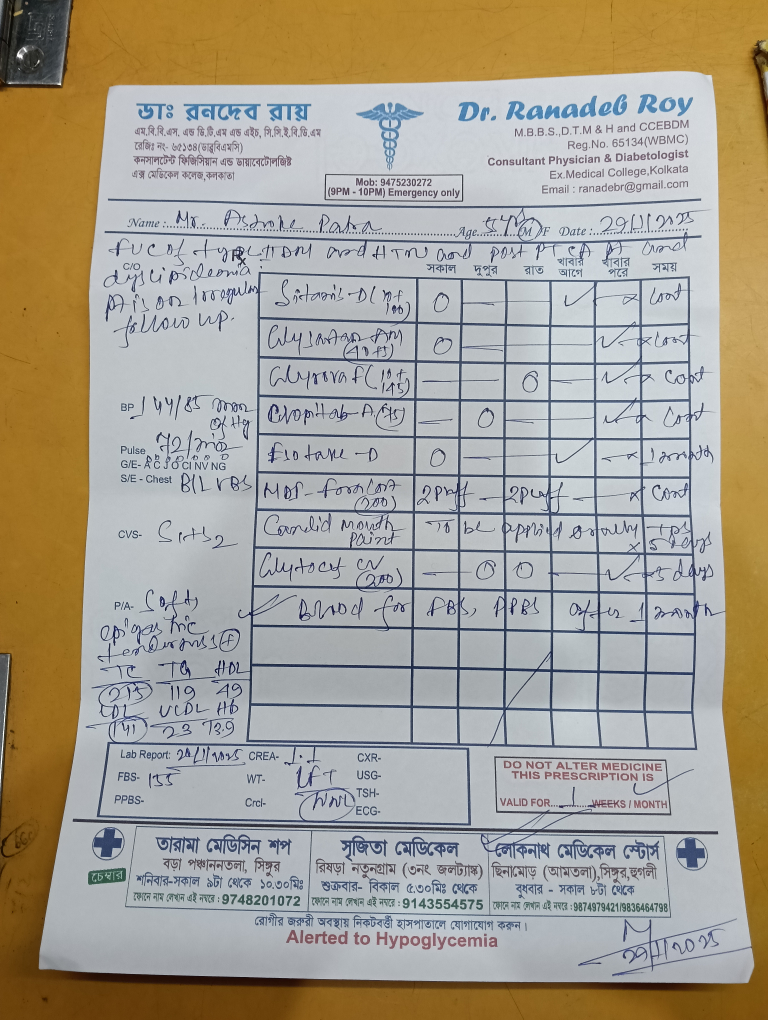 ডাঃ রনদেব রায়
এম,বি,বি,এস, এন্ড ডি,টি,এম এন্ড এইচ, সি,সি,ই,বি,ডি,এম
রেজিঃ নং- ৬৫১৩৪(ডাব্লুবিএমসি)
কনসালটেন্ট ফিজিসিয়ান এন্ড ডায়াবেটোলজিষ্ট
এক্স মেডিকেল কলেজ,কলকাতা
Mob: 9475230272
(9PM - 10PM) Emergency only
Dr. Ranadeb Roy
M.B.B.S.,D.T.M & H and CCEBDM
Reg.No. 65134(WBMC)
Consultant Physician & Diabetologist
Ex.Medical College,Kolkata
Email : ranadebr@gmail.com
Name : Mr. Ashoke Patra Age 54 Y M/F Date : 29/1/2025
and HTN and post PTCA and
C/O dyslipidemia
Pt is on irregular
follow up.
Rx
সকাল দুপুর রাত খাবার আগে খাবার পরে সময়
(10+100) O — — ✓ — x Cont
AM (40+5) O — — — ✓ x Cont
(10+145) — — O — ✓ x Cont
A (75) — O — — ✓ x Cont
BP 144/85 mm of Hg
Pulse 72/min
G/E- A C J O CI NV NG
-D O — — ✓ — x 1 month
S/E - Chest B/L VBS
MDI- Foracort (200) 2 Puff — 2 Puff — x Cont
Candid Mouth Paint To be applied orally TDS x 5 days
CVS- S1+S2
CV (200) — O O — ✓ x 5 days
P/A- Soft,
epigastric
tenderness (+)
✓ Blood for FBS, PPBS after 1 month
TC TG HDL
213 119 49
LDL VLDL Hb
141 23 13.9
Lab Report: 29/1/2025 CREA- 1.1 CXR-
FBS- 155 WT- LFT USG-
TSH-
PPBS- Crcl- WNL ECG-
DO NOT ALTER MEDICINE
THIS PRESCRIPTION IS
VALID FOR 1 WEEKS / MONTH
চেম্বার
তারামা মেডিসিন শপ
বড়া পঞ্চাননতলা, সিঙ্গুর
শনিবার-সকাল ৯টা থেকে ১০.৩০মিঃ
ফোনে নাম লেখান এই নম্বরে : 9748201072
সৃজিতা মেডিকেল
রিষড়া নতুনগ্রাম (৩নং জলট্যাঙ্ক)
শুক্রবার- বিকাল ৫.৩০মিঃ থেকে
ফোনে নাম লেখান এই নম্বরে : 9143554575
লোকনাথ মেডিকেল স্টোর্স
ছিনামোড় (আমতলা),সিঙ্গুর,হুগলী
বুধবার - সকাল ৮টা থেকে
ফোনে নাম লেখান এই নম্বরে :9874979421/9836464798
রোগীর জরুরী অবস্থায় নিকটবর্ত্তী হাসপাতালে যোগাযোগ করুন।
Alerted to Hypoglycemia
29/1/2025